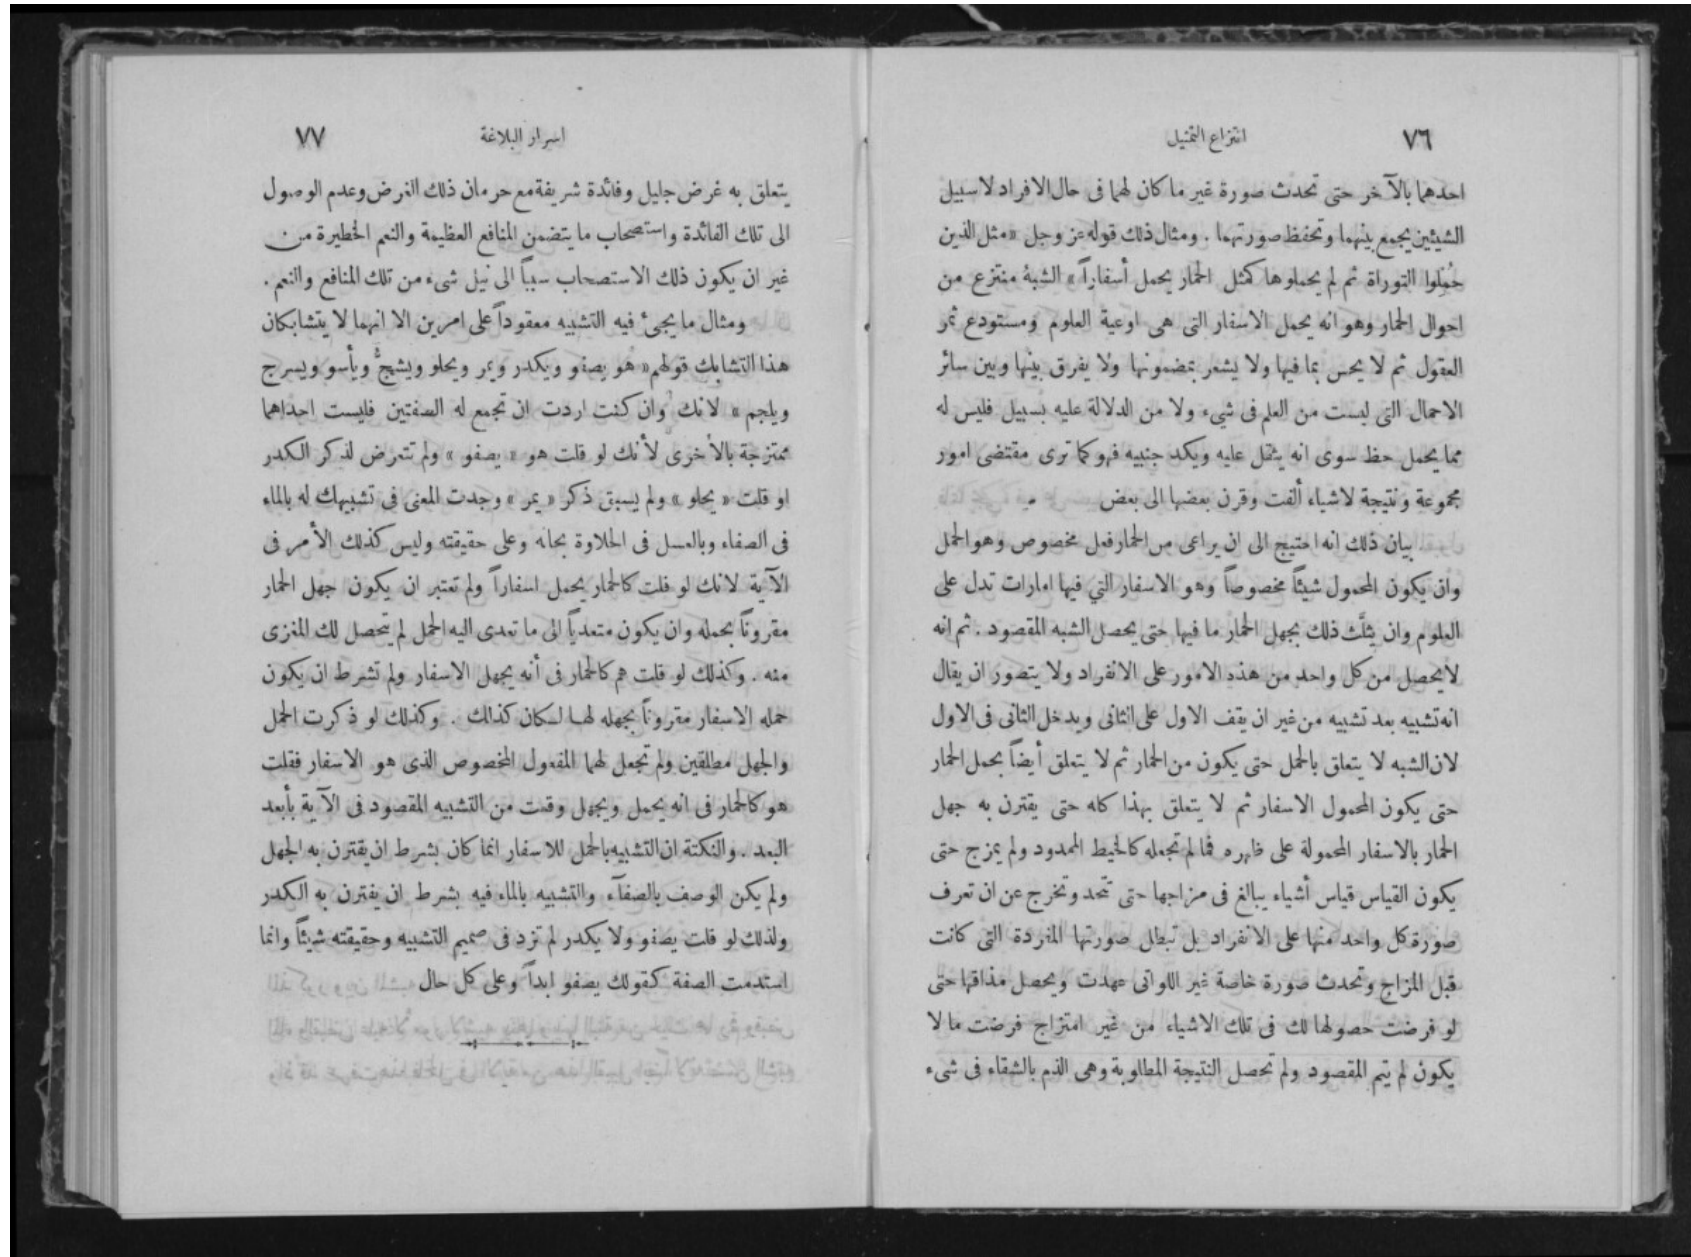 ٧٦
انتزاع التمثيل
احدهما بالآخر حتى تحدث صورة غير ما كان لهما فى حال الافراد لا سبيل
الشيئين يجمع بينهما وتحفظ صورتهما . ومثال ذلك قوله عز وجل « مثل الذين
حُمِّلوا التوراة ثم لم يحملوها كمثل الحمار يحمل أسفاراً » الشبهُ منتزع من
احوال الحمار وهو انه يحمل الاسفار التى هى اوعية العلوم ومستودع ثمر
العقول ثم لا يحس بما فيها ولا يشعر بمضمونها ولا يفرق بينها وبين سائر
الاحمال التى ليست من العلم فى شيء ولا من الدلالة عليه بسبيل فليس له
مما يحمل حظ سوى انه يثقل عليه ويكد جنبيه فهو كما ترى مقتضى امور
مجموعة ونتيجة لاشياء ألفت وقرن بعضها الى بعض
بيان ذلك انه احتيج الى ان يراعى من الحمار فعل مخصوص وهو الحمل
وان يكون المحمول شيئاً مخصوصاً وهو الاسفار التي فيها امارات تدل على
العلوم وان يثلَّث ذلك بجهل الحمار ما فيها حتى يحصل الشبه المقصود . ثم انه
لا يحصل من كل واحد من هذه الامور على الانفراد ولا يتصور ان يقال
انه تشبيه بعد تشبيه من غير ان يقف الاول على الثانى ويدخل الثانى فى الاول
لان الشبه لا يتعلق بالحمل حتى يكون من الحمار ثم لا يتعلق أيضاً بحمل الحمار
حتى يكون المحمول الاسفار ثم لا يتعلق بهذا كله حتى يقترن به جهل
الحمار بالاسفار المحمولة على ظهره فما لم تجعله كالخيط الممدود ولم يمزج حتى
يكون القياس قياس أشياء يبالغ فى مزاجها حتى تتحد وتخرج عن ان تعرف
صورة كل واحد منها على الانفراد بل تبطل صورتها المفردة التى كانت
قبل المزاج وتحدث صورة خاصة غير اللواتى عهدت ويحصل مذاقها حتى
لو فرضت حصولها لك فى تلك الاشياء من غير امتزاج فرضت ما لا
يكون لم يتم المقصود ولم تحصل النتيجة المطلوبة وهى الذم بالشقاء فى شىء
اسرار البلاغة
٧٧
يتعلق به غرض جليل وفائدة شريفة مع حرمان ذلك الغرض وعدم الوصول
الى تلك الفائدة واستصحاب ما يتضمن المنافع العظيمة والنعم الخطيرة من
غير ان يكون ذلك الاستصحاب سبباً الى نيل شىء من تلك المنافع والنعم .
ومثال ما يجىء فيه التشبيه معقوداً على امرين الا انهما لا يتشابكان
هذا التشابك قولهم « هو يصفو ويكدر ويمر ويحلو ويشجُّ ويأسو ويسرج
ويلجم » لانك وان كنت اردت ان تجمع له الصفتين فليست احداهما
ممتزجة بالأخرى لأنك لو قلت هو « يصفو » ولم تتعرض لذكر الكدر
او قلت « يحلو » ولم يسبق ذكر « يمر » وجدت المعنى فى تشبيهك له بالماء
فى الصفاء وبالعسل فى الحلاوة بحاله وعلى حقيقته وليس كذلك الأمر فى
الآية لانك لو قلت كالحمار يحمل اسفاراً ولم تعتبر ان يكون جهل الحمار
مقروناً بحمله وان يكون متعدياً الى ما تعدى اليه الحمل لم يتحصل لك المغزى
منه . وكذلك لو قلت هم كالحمار فى أنه يجهل الاسفار ولم تشرط ان يكون
حمله الاسفار مقروناً بجهله لها لكان كذلك . وكذلك لو ذكرت الحمل
والجهل مطلقين ولم تجعل لهما المفعول المخصوص الذى هو الاسفار فقلت
هو كالحمار فى انه يحمل ويجهل وقعت من التشبيه المقصود فى الآية بأبعد
البعد . والنكتة ان التشبيه بالحمل للاسفار انما كان بشرط ان يقترن به الجهل
ولم يكن الوصف بالصفآء والتشبيه بالماء فيه بشرط ان يقترن به الكدر
ولذلك لو قلت يصفو ولا يكدر لم تزد فى صميم التشبيه وحقيقته شيئاً وانما
استدمت الصفة كقولك يصفو ابداً وعلى كل حال